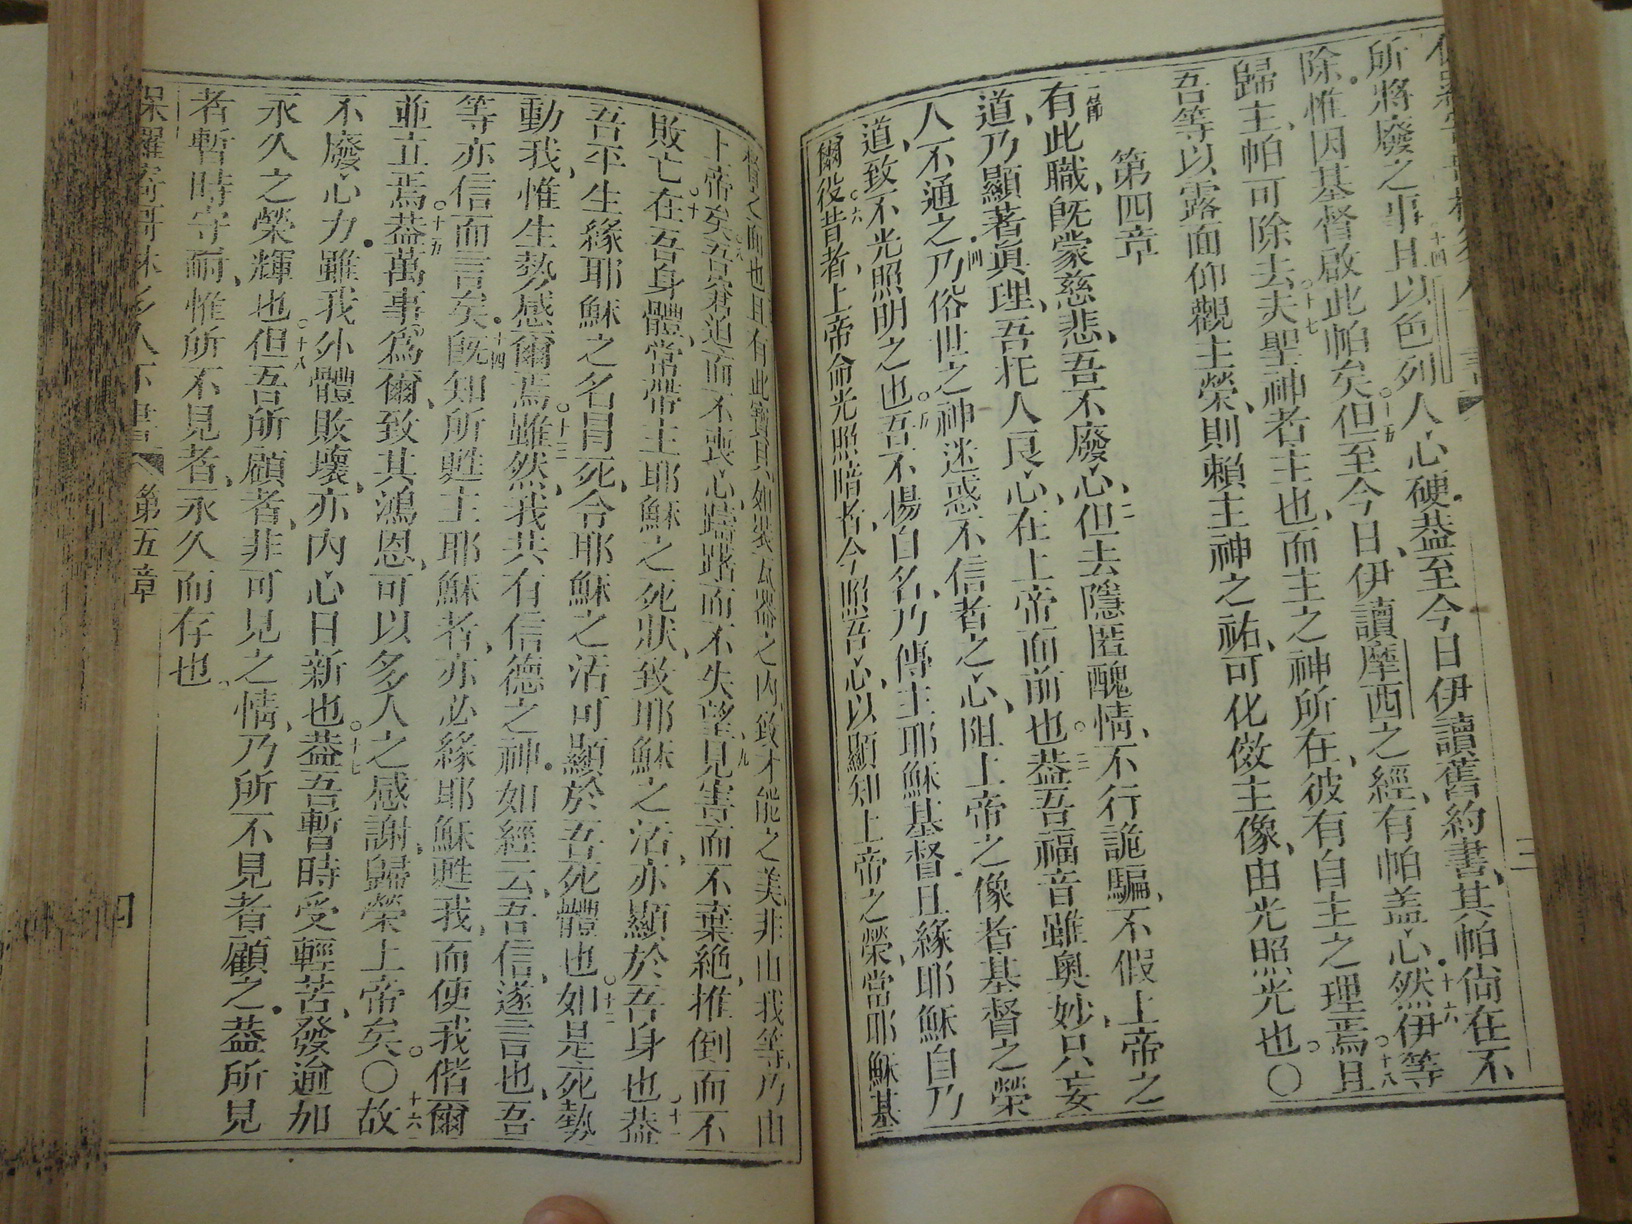 所將廢之事且以色列人心硬蓋至今日伊讀舊約書其帕尙在不
十四
除惟因基督啟此帕矣但至今日伊讀摩西之經有帕盖心然伊等
十五
十六
歸主帕可除去夫聖神者主也而主之神所在彼有自主之理焉且
十七
十八
吾等以露面仰觀主榮則賴主神之祐可化傚主像由光照光也〇
三
第四章
一節
有此職旣蒙慈悲吾不廢心但去隱匿醜情不行詭騙不假上帝之
二
道乃顯著眞理吾托人良心在上帝而前也蓋吾福音雖奧妙只妄
三
人不通之乃俗世之神迷惑不信者之心阻上帝之像者基督之榮
四
道致不光照明之也吾不揚自名乃傳主耶穌基督且緣耶穌自乃
五
爾役昔者上帝命光照暗者今照吾心以顯知上帝之榮當耶穌基
六
督之面也且有此寶貝如裝瓦器之內致才能之美非由我等乃由
上帝矣吾窘迫而不喪心躊躇而不失望見害而不棄絶推倒而不
八
九
敗亡在吾身體常帶主耶穌之死狀致耶穌之活亦顯於吾身也蓋
十
十一
吾平生緣耶穌之名冒死令耶穌之活可顯於吾死體也如是死勢
十二
動我惟生勢感爾焉雖然我共有信德之神如經云吾信遂言也吾
十三
等亦信而言矣旣知所甦主耶穌者亦必緣耶穌甦我而使我偕爾
十四
並立焉蓋萬事爲爾致其鴻恩可以多人之感謝歸榮上帝矣〇故
十五
十六
不廢心力雖我外體敗壞亦內心日新也蓋吾暫時受輕苦發逾加
十七
永久之榮輝也但吾所顧者非可見之情乃所不見者顧之蓋所見
十八
者暫時守耐惟所不見者永久而存也
第五章
四